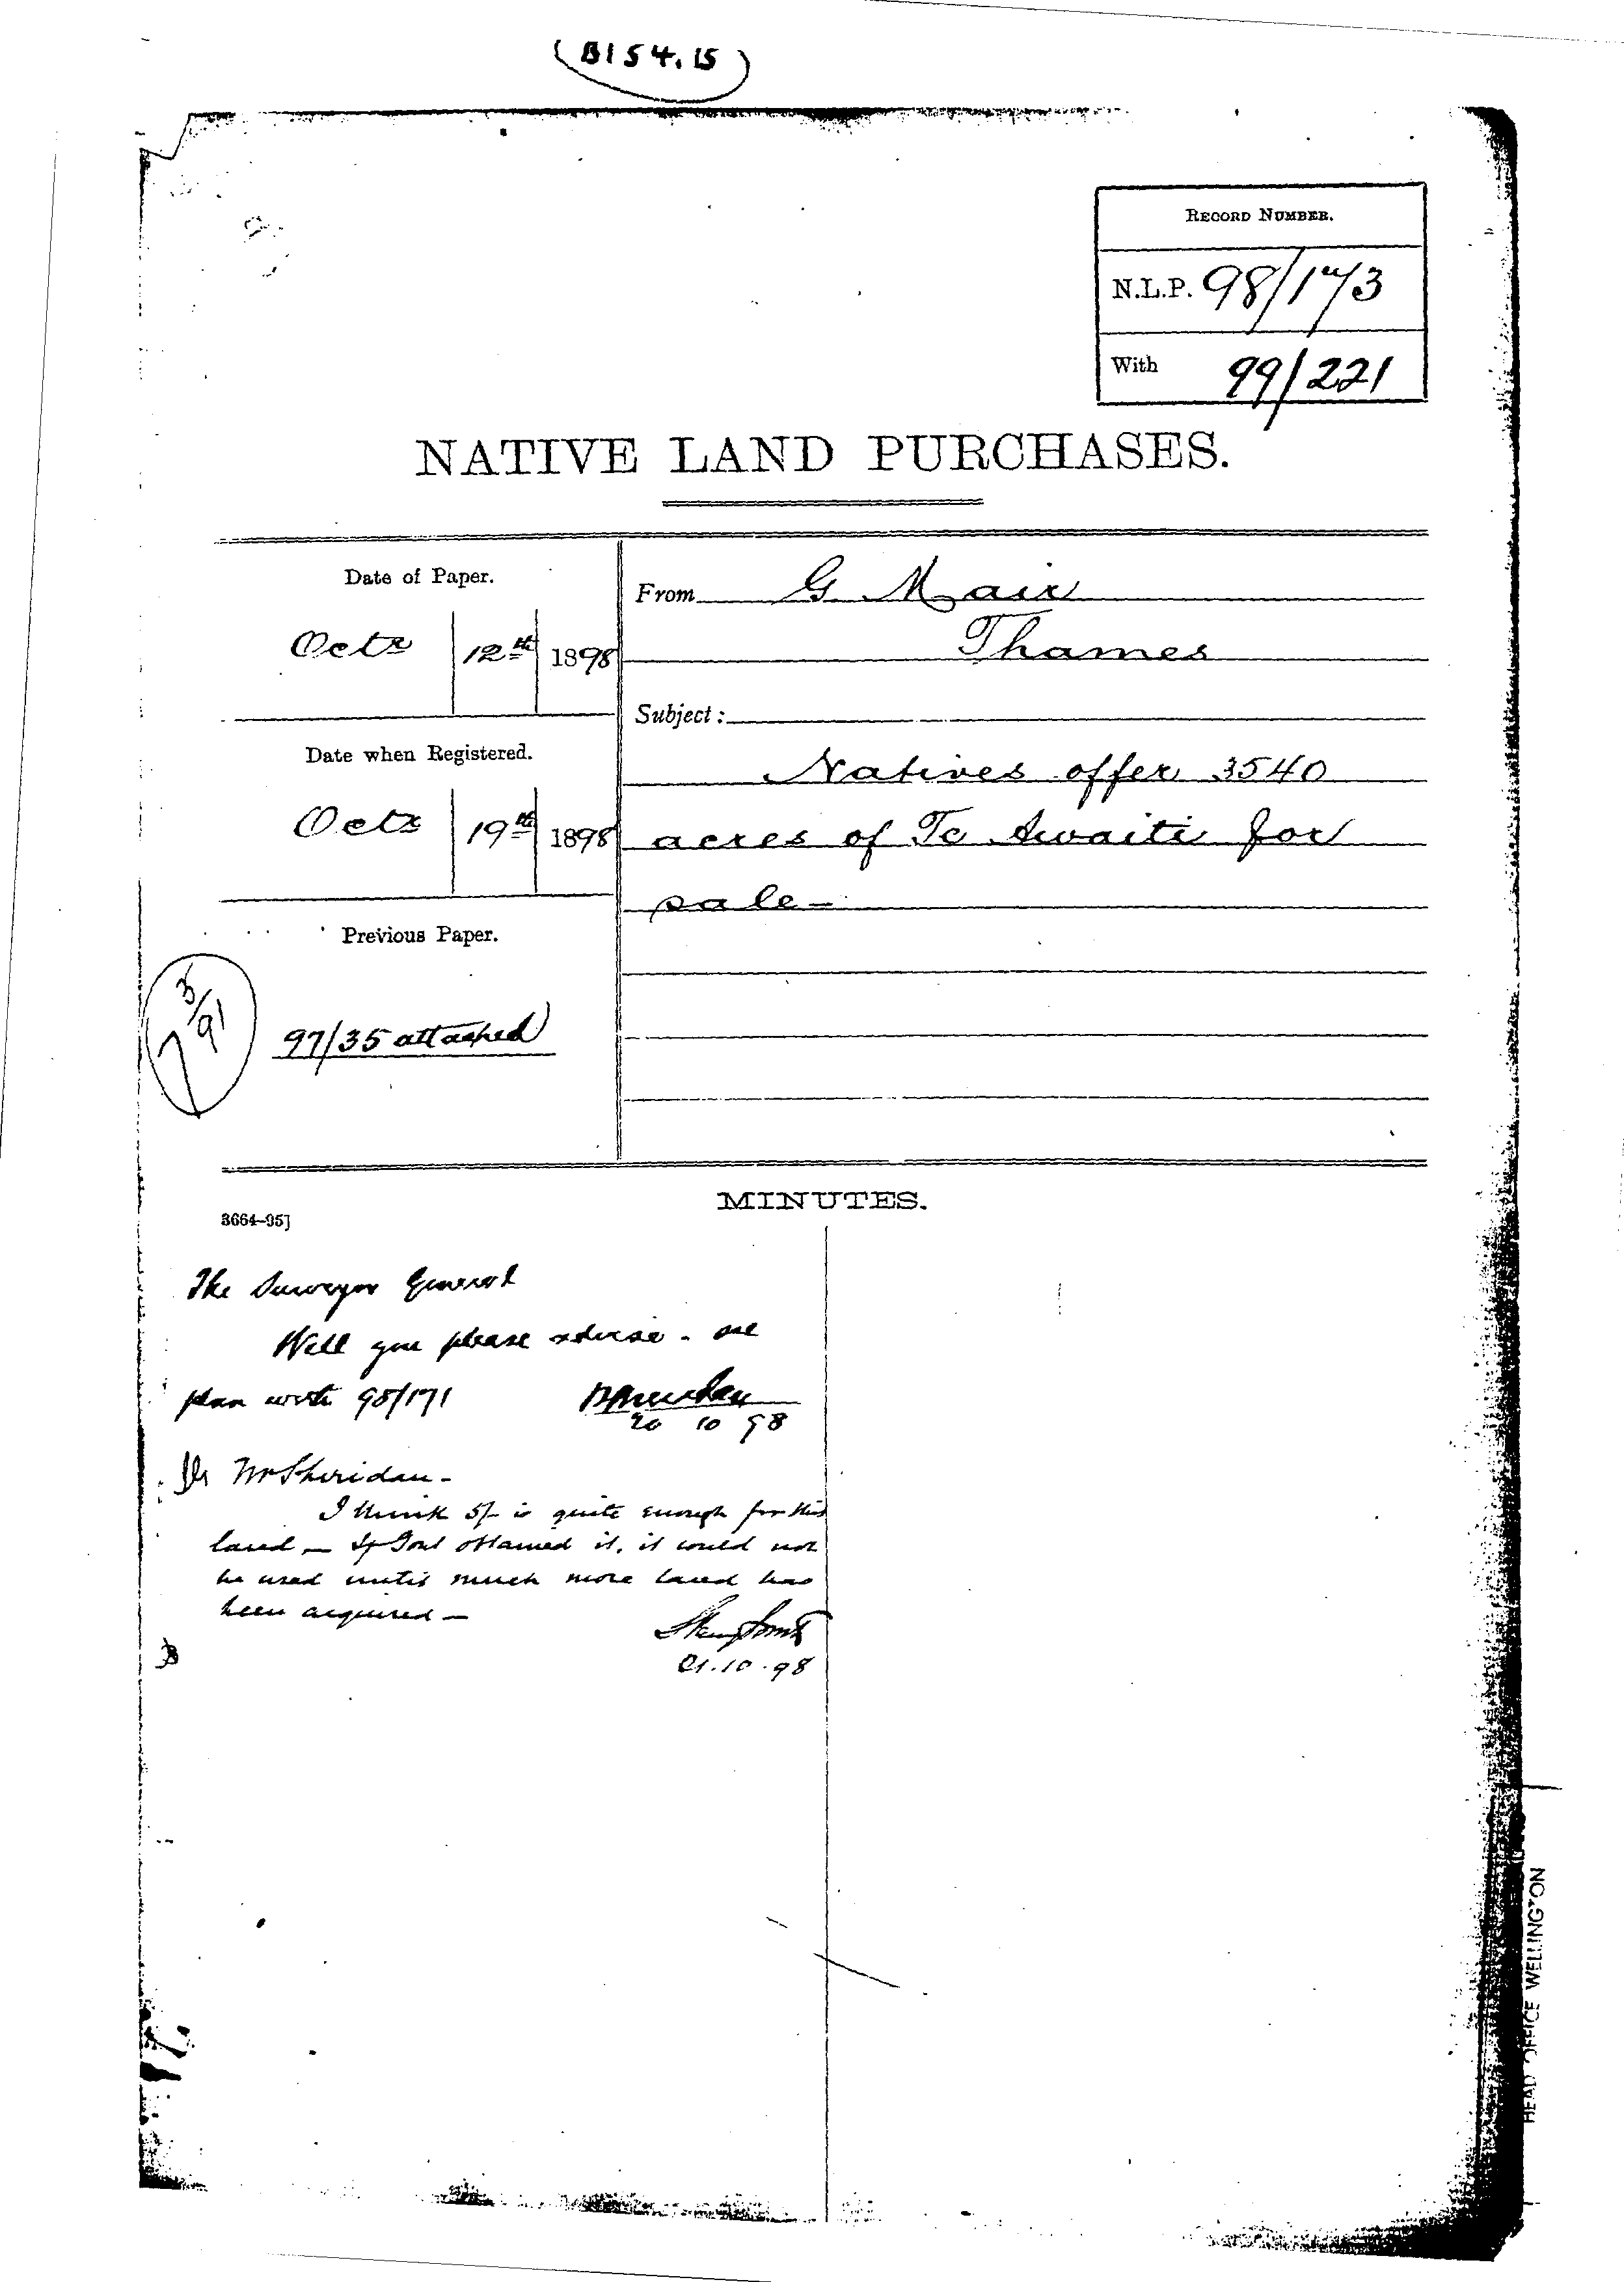 (B154.15)
RECORD NUMBER.
N.L.P. 98/173
With 99/221
NATIVE LAND PURCHASES.
Date of Paper.
Octr 12th 1898
From G Mair
Thames
Subject:
Natives offer 3540
acres of Te Awaiti for
sale—
Date when Registered.
Octr 19th 1898
Previous Paper.
97/35 attached
MINUTES.
3664–95]
The Surveyor General
Will you please advise - see
plan with 98/171
20 10 98
Mr Sheridan -
I think 5/- is quite enough for this
land — If Govt obtained it, it could not
be used until much more land has
been acquired —
21.10.98
HEAD OFFICE WELLINGTON